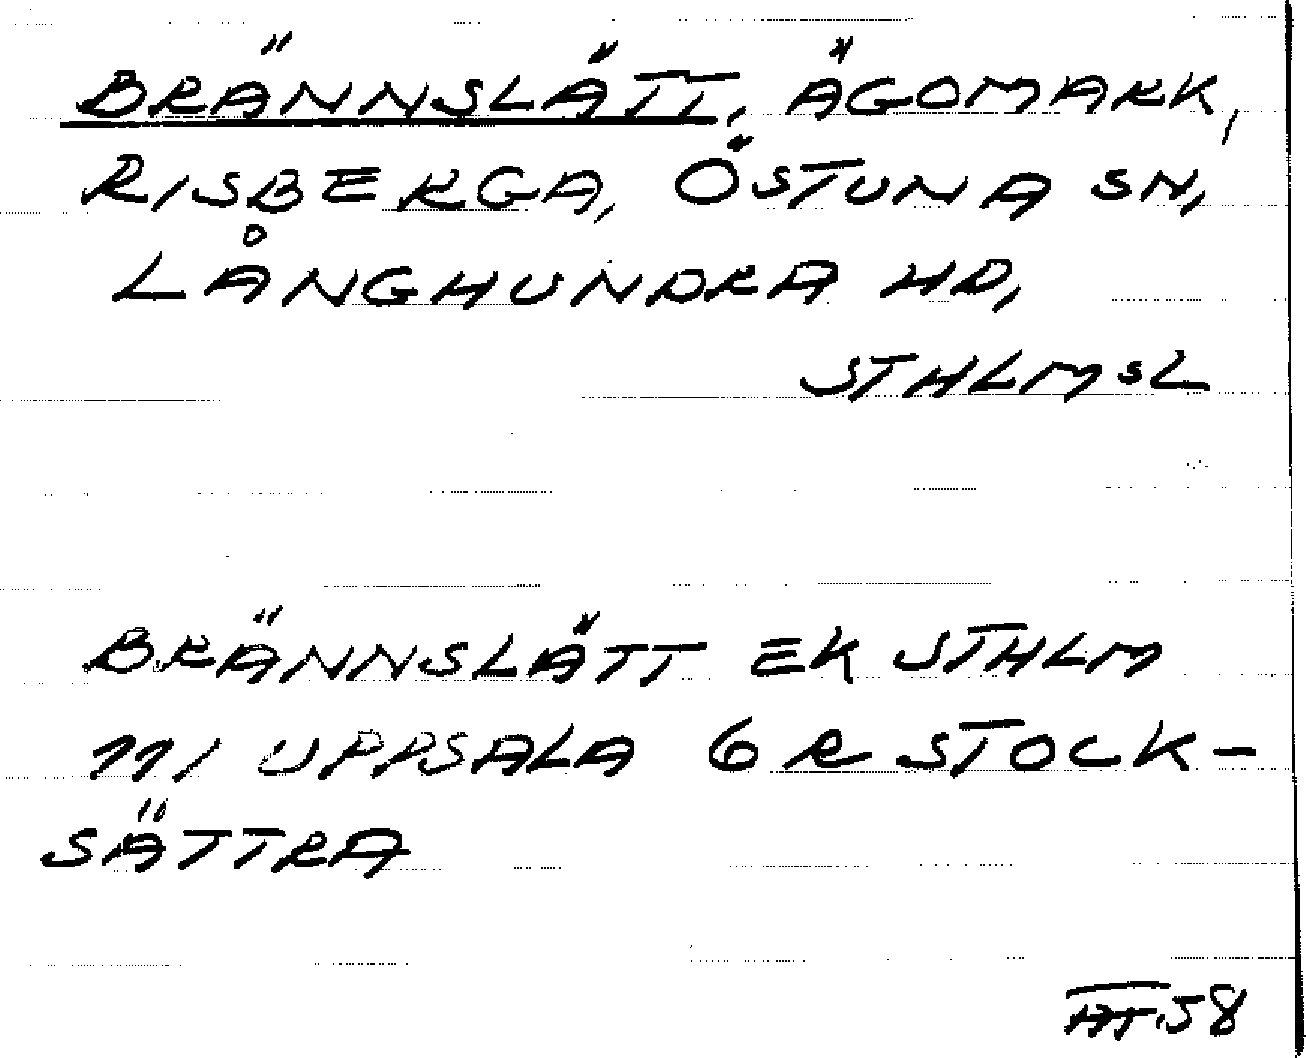 BRÄNNSLÄTT, ÄGOMARK,
RISBERGA, ÖSTUNA SN,
LÅNGHUNDRA HD,
STHLMSL
BRÄNNSLÄTT EK STHLM
111 UPPSALA 6 R STOCK-
SÄTTRA
58